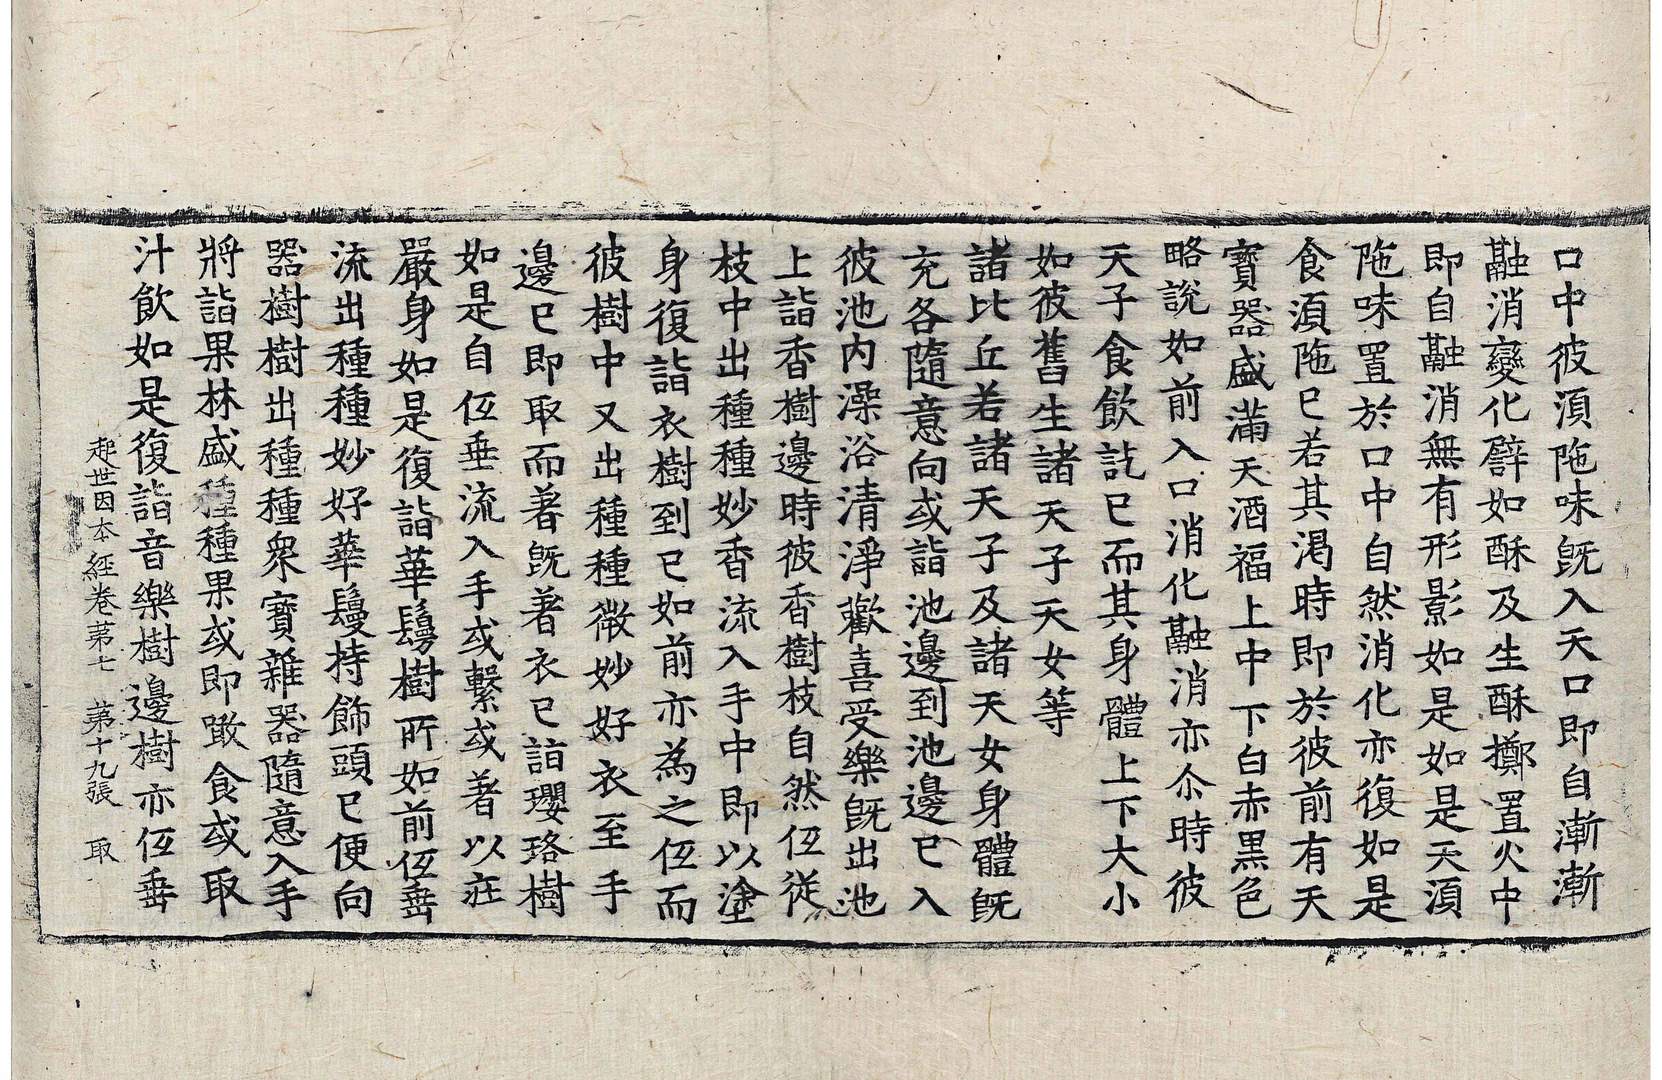 口中彼湏陁味旣入天口即自漸漸
融消變化譬如酥及生酥擲置火中
即自融消無有形影如是如是天湏
陁味置於口中自然消化亦復如是
食湏陁已若其渴時即於彼前有天
寶器盛滿天酒福上中下白赤黒色
略說如前入口消化融消亦尒時彼
天子食飮訖已而其身體上下大小
如彼舊生諸天子天女等
諸比丘若諸天子及諸天女身體旣
充各隨意向或詣池邊到池邊已入
彼池內澡浴清淨歡喜受樂旣出池
上詣香樹邊時彼香樹枝自然仾從
枝中出種種妙香流入手中即以塗
身復詣衣樹到已如前亦為之仾而
彼樹中又出種種微妙好衣至手
邊已即取而著旣著衣已詣瓔珞樹
如是自仾垂流入手或繫或著以莊
嚴身如是復詣華鬘樹所如前仾垂
流出種種妙好華鬘持飾頭已便向
器樹樹出種種衆寶雜器隨意入手
將詣果林盛種種果或即噉食或取
汁飮如是復詣音樂樹邊樹亦仾垂
起世因本經卷苐七　苐十九張　取